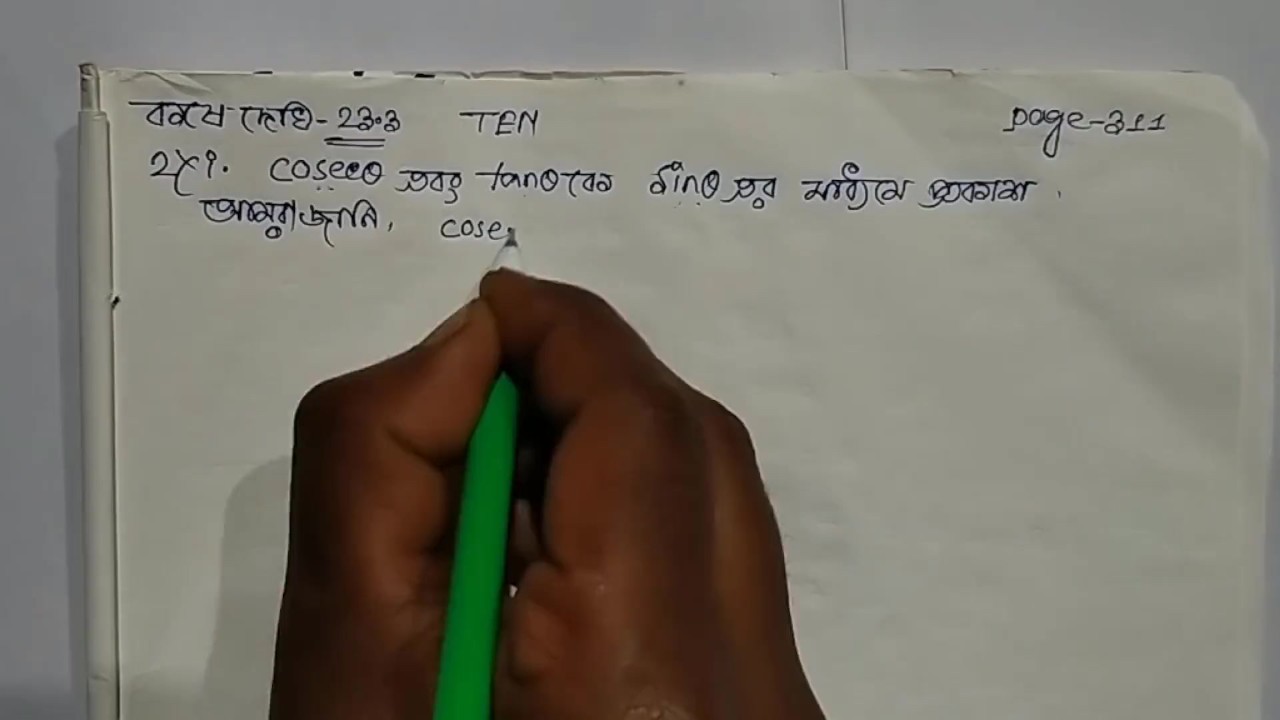 কষে দেখি- 23.3 TEN page-311
2)(i). cosecθ এবং tanθ কে sinθ এর মাধ্যমে প্রকাশ.
আমরা জানি, cose